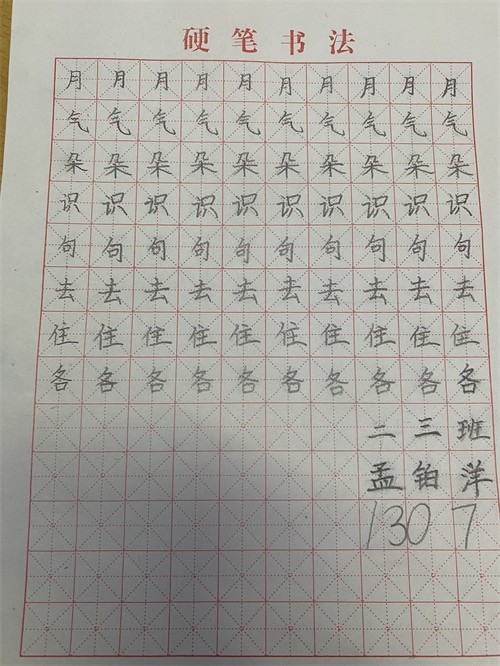 硬笔书法
月月月月月月月月月月
气气气气气气气气气气
朵朵朵朵朵朵朵朵朵朵
识识识识识识识识识识
句句句句句句句句句句
去去去去去去去去去去
住住住住住住住住住住
各各各各各各各各各各
二三班
孟铂洋
1307